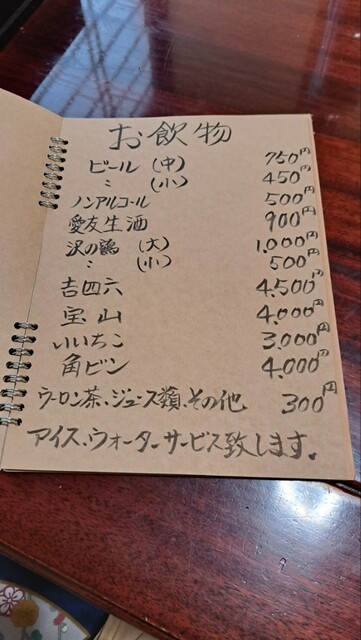 お飲物
ビール (中) 750円
〃 (小) 450円
ノンアルコール 500円
愛友生酒 900円
沢の鶴 (大) 1,000円
〃 (小) 500円
吉四六 4,500円
宝山 4,000円
いいちこ 3,000円
角ビン 4,000円
ウーロン茶、ジュース類、その他 300円
アイス、ウォーター、サービス致します。